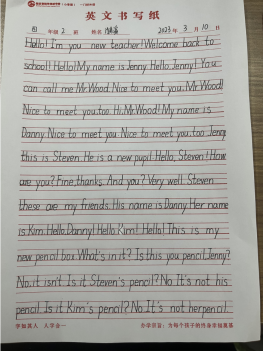 英文书写纸
四 年级 2 班 姓名 2023 年 3 月 10 日
Hello! I'm you new teacher! Welcome back to
school! Hello! My name is Jenny. Hello, Jenny! You
can call me Mr.Wood. Nice to meet you, Mr.Wood!
Nice to meet you, too. Hi, Mr.Wood! My name is
Danny. Nice to meet you. Nice to meet you, too. Jenny
this is Steven. He is a new pupil. Hello, Steven! How
are you? Fine, thanks. And you? Very well. Steven
these are my friends. His name is Danny. Her name
is Kim. Hello, Danny! Hello, Kim! Hello! This is my
new pencil box. What's in it? Is this you pencil, Jenny?
No, it isn't. Is it Steven's pencil? No. It's not his
pencil. Is it Kim's pencil? No. It's not her pencil.
字如其人 人字合一 办学宗旨：为每个孩子的终身幸福奠基